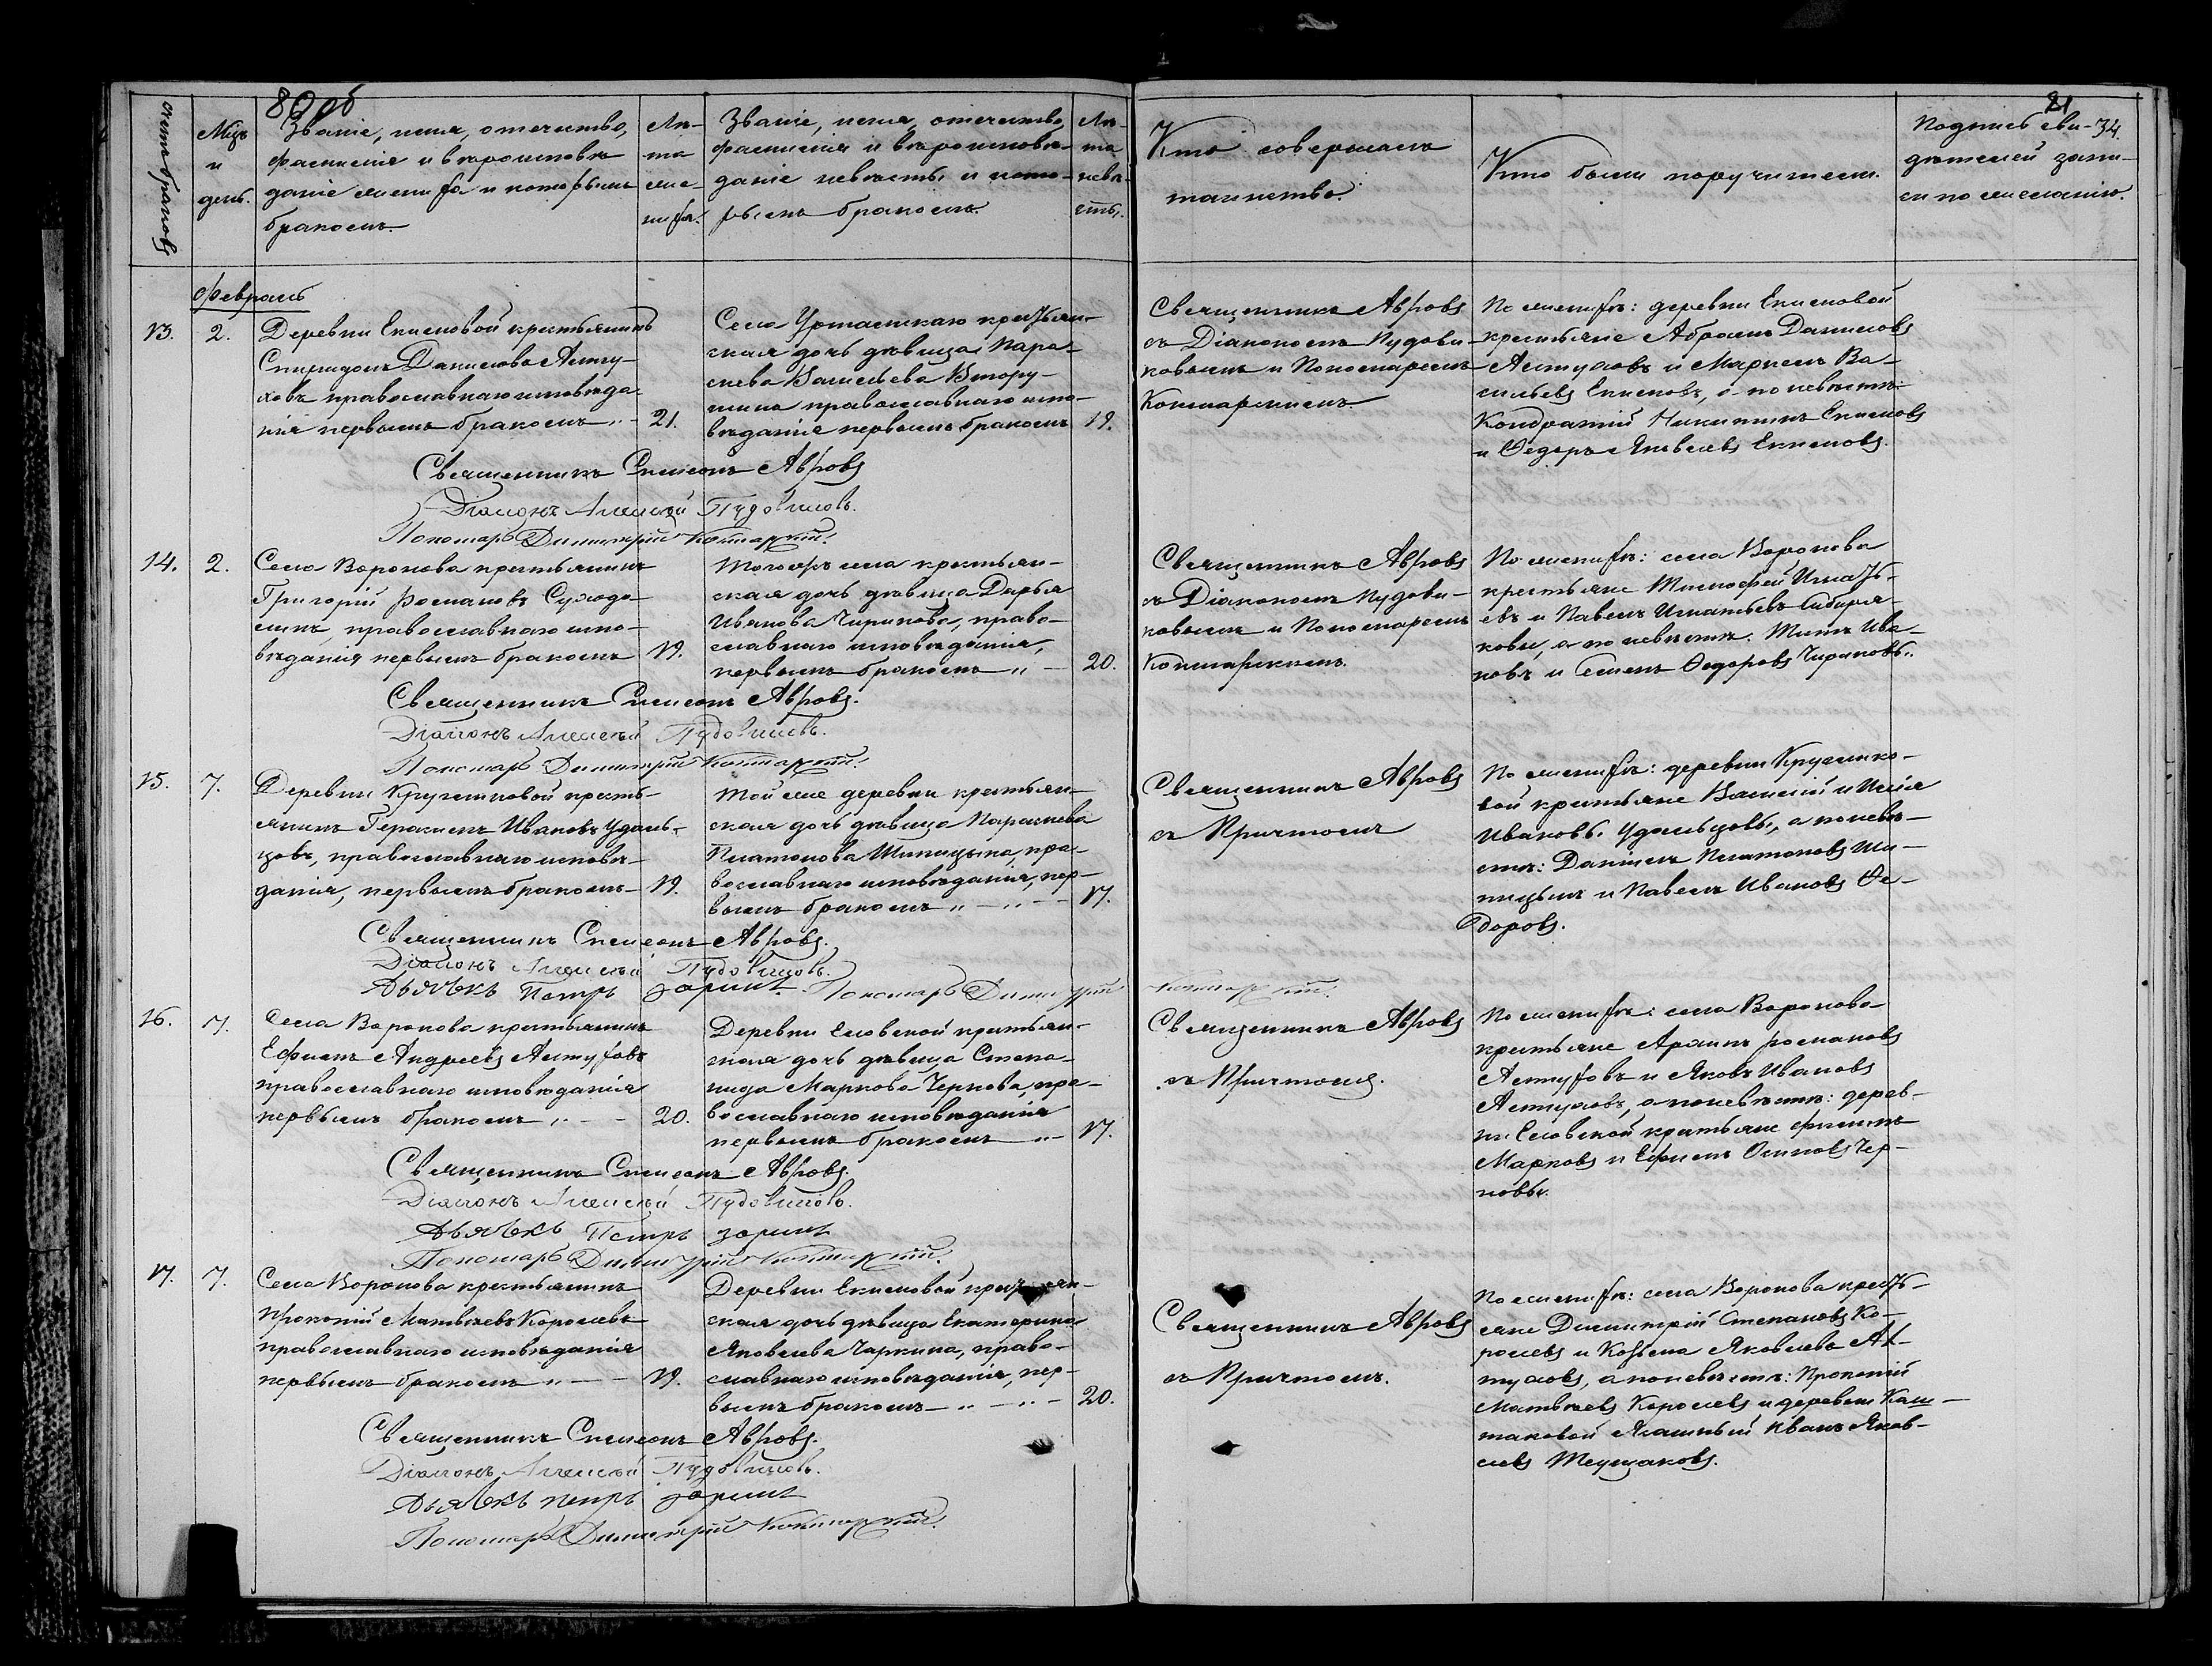 80 об
счетъ браковъ
Мцъ
и
день.
Званіе, имя, отечество,
фамилія и вѣроисповѣ
даніе жениха и которымъ
бракомъ.
Лѣ-
та
же-
ниха.
Званіе, имя, отечество,
фамилія и вѣроисповѣ-
даніе невѣсты и кото-
рымъ бракомъ.
Лѣ-
та
невѣ-
сты.
Февраль
13.
2.
Деревни Екимовой крестьянинъ
Спиридонъ Даниловъ Алту-
ховъ православнаго исповѣда-
нія первымъ бракомъ
21.
Села крестьян-
ская дочь дѣвица Пара-
скева Васильева Втору-
шина православнаго испо-
вѣданія первымъ бракомъ
19.
Священникъ Симеонъ Авровъ
Діаконъ Алексѣй Пудовиковъ.
Пономарь Димитрій Котшарскій.
14.
2.
Села Воронова крестьянинъ
Григорій Романовъ Суходо-
линъ, православнаго испо-
вѣданія первымъ бракомъ
19.
Тогожъ села крестьян-
ская дочь дѣвица Дарья
Иванова Чирикова, право-
славнаго исповѣданія,
первымъ бракомъ
20.
Священникъ Симеонъ Авровъ.
Діаконъ Алексѣй Пудовиковъ.
Пономарь Димитрій
15.
7.
Деревни Кругликовой кресть-
янинъ Герасимъ Ивановъ Удаль-
цовъ, православнаго исповѣ-
данія, первымъ бракомъ
19.
Той же деревни крестьян-
ская дочь дѣвица Параскева
Платонова Шипицына, пра-
вославнаго исповѣданія, пер-
вымъ бракомъ
17.
Священникъ Симеонъ Авровъ.
Діаконъ Алексѣй Пудовиковъ.
Дьячекъ Петръ Зоринъ. Пономарь Димитрій
16.
7.
Села Воронова крестьянинъ
Ефимъ Андреевъ Алтуховъ
православнаго исповѣданія
первымъ бракомъ
20.
Деревни Еловской крестьян-
ская дочь дѣвица Степа-
нида Маркова Чернова, пра-
вославнаго исповѣданія
первымъ бракомъ
17.
Священникъ Симеонъ Авровъ.
Діаконъ Алексѣй Пудовиковъ.
Дьячекъ Петръ Зоринъ
Пономарь Димитрій
17.
7.
Села Воронова крестьянинъ
Прокопій Матвѣевъ Королевъ
православнаго исповѣданія
первымъ бракомъ
19.
Деревни Екимовой крестьян-
ская дочь дѣвица Екатерина
Яковлева Чаркина, право-
славнаго исповѣданія, пер-
вымъ бракомъ
20.
Священникъ Симеонъ Авровъ.
Діаконъ Алексѣй Пудовиковъ.
Дьячекъ Петръ Зоринъ
Пономарь Димитрій
81
34.
Кто совершалъ
таинство.
Кто были поручители.
Подпись сви-
дѣтелей запи-
си по желанію.
Священникъ Авровъ
съ Діакономъ Пудови-
ковымъ и Пономаремъ
По женихѣ: деревни Екимовой
крестьяне Абрамъ Даниловъ
Алтуховъ и Маркелъ Ва-
сильевъ Екимовъ, а по невѣстѣ:
Кондратій Никитинъ Екимовъ
и Ѳедоръ Яковлевъ Екимовъ.
Священникъ Авровъ
съ Діакономъ Пудови-
ковымъ и Пономаремъ
По женихѣ: села Воронова
крестьяне Тимофей Игнать-
евъ и Павелъ Игнатьевъ Сибиря-
ковы, а по невѣстѣ: Титъ Ива-
новъ и Семенъ Ѳедоровъ Чириковы.
Священникъ Авровъ
съ Причтомъ
По женихѣ: деревни Круглико-
вой крестьяне Василій и Илія
Ивановы Удальцовы, а по невѣ-
стѣ: Даніилъ Платоновъ Ши-
пицынъ и Павелъ Ивановъ Ѳе-
доровъ.
Священникъ Авровъ
съ Причтомъ.
По женихѣ: села Воронова
крестьяне Романовъ
Алтуховъ и Яковъ Ивановъ
Алтуховъ, а по невѣстѣ: дерев-
ни Еловской крестьяне Филипъ
Марковъ и Ефимъ Осиповъ Чер-
новы.
Священникъ Авровъ
съ Причтомъ.
По женихѣ: села Воронова кресть-
яне Димитрій Степановъ Ко-
ролевъ и Козьма Яковлевъ Ал-
туховъ, а по невѣстѣ: Прокопій
Матвѣевъ Королевъ и деревни Каш-
таковой Ясашный Иванъ Яков-
левъ Теущаковъ.